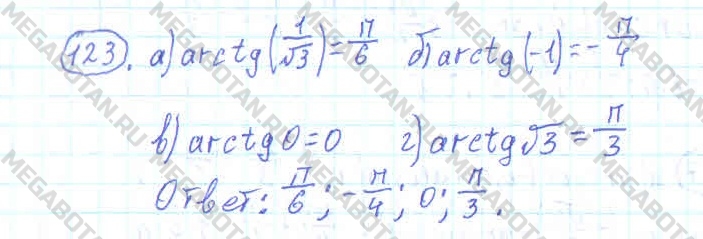 123. а) arctg(1/√3) = π/6 б) arctg(-1) = -π/4
в) arctg 0 = 0 г) arctg √3 = π/3
Ответ: π/6; -π/4; 0; π/3.
MEGABOTAN.RU